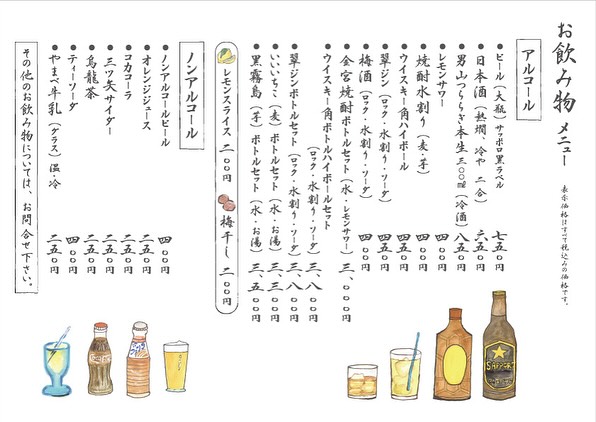 お飲み物 メニュー
表示価格はすべて税込みの価格です。
アルコール
● ビール（大瓶）サッポロ黒ラベル 七五〇円
● 日本酒（熱燗、冷や 二合） 六五〇円
● 男山 本生三〇〇㎖（冷酒） 八五〇円
● レモンサワー 四〇〇円
● 焼酎水割り（麦・芋） 四〇〇円
● ウイスキー角ハイボール 四五〇円
● 翠ジン（ロック・水割り・ソーダ） 四五〇円
● 梅酒（ロック・水割り・ソーダ） 四〇〇円
● 金宮焼酎ボトルセット（水・レモンサワー） 三、〇〇〇円
● ウイスキー角ボトルハイボールセット
（ロック・水割り・ソーダ） 三、八〇〇円
● 翠・ジンボトルセット（ロック・水割り・ソーダ） 三、八〇〇円
● いいちこ（麦）ボトルセット（水・お湯） 三、三〇〇円
● 黒霧島（芋）ボトルセット（水・お湯） 三、五〇〇円
レモンスライス 二〇〇円 梅干し 二〇〇円
ノンアルコール
● ノンアルコールビール 四〇〇円
● オレンジジュース 二五〇円
● コカコーラ 二五〇円
● 三ツ矢サイダー 二五〇円
● 烏龍茶 二五〇円
● ティーソーダ 四〇〇円
● やまべ牛乳（グラス）温・冷 二五〇円
その他のお飲み物については、お問合せ下さい。